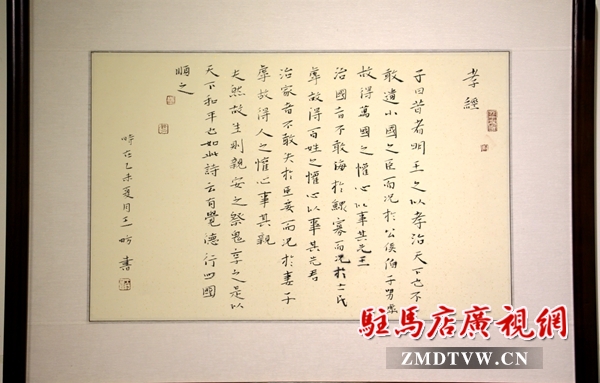 孝經
子曰昔者明王之以孝治天下也不
敢遺小國之臣而况於公侯伯子男虖
故得萬國之懽心以事其先王
治國者不敢侮於鰥寡而况於士民
虖故得百姓之懽心以事其先君
治家者不敢失於臣妾而况於妻子
虖故得人之懽心事其親
夫然故生則親安之祭鬼享之是以
天下和平也如此詩云有覺德行四國
順之
時在乙未夏月王昉書
駐馬店廣視網
ZMDTVW.CN